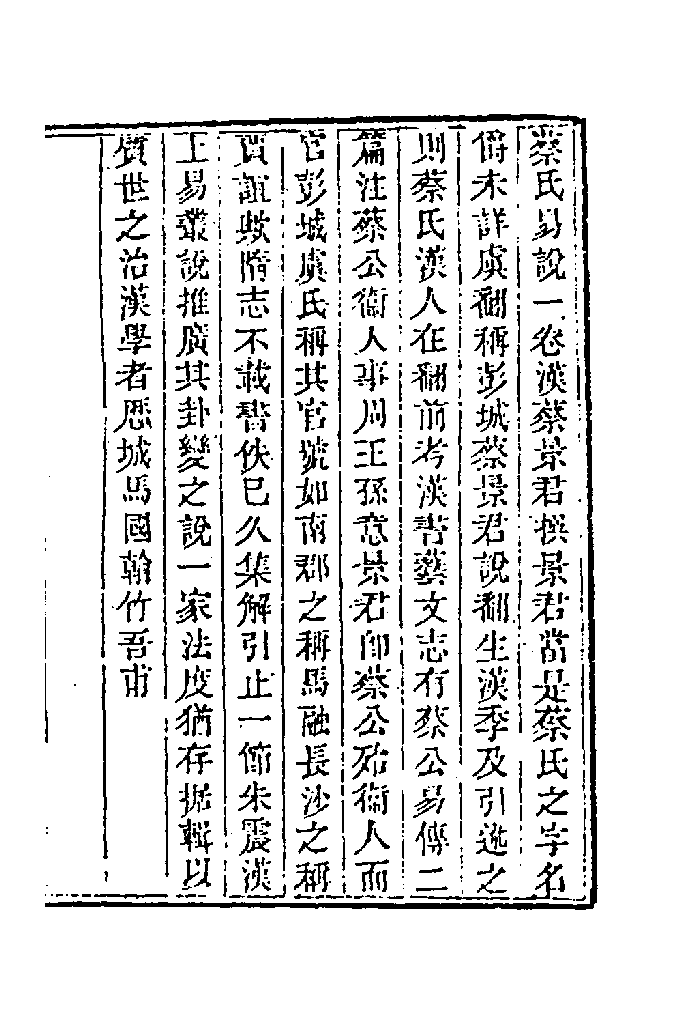 蔡氏易說一卷漢蔡景君撰景君當是蔡氏之字名
爵未詳虞翻稱彭城蔡景君說翻生漢季及引述之
則蔡氏漢人在翻前考漢書藝文志有蔡公易傳二
篇注蔡公衞人事周王孫意景君卽蔡公殆衞人而
官彭城虞氏稱其官號如南郡之稱馬融長沙之稱
賈誼歟隋志不載書佚已久集解引止一節朱震漢
上易叢說推廣其卦變之說一家法度猶存据輯以
質世之治漢學者歷城馬國翰竹吾甫